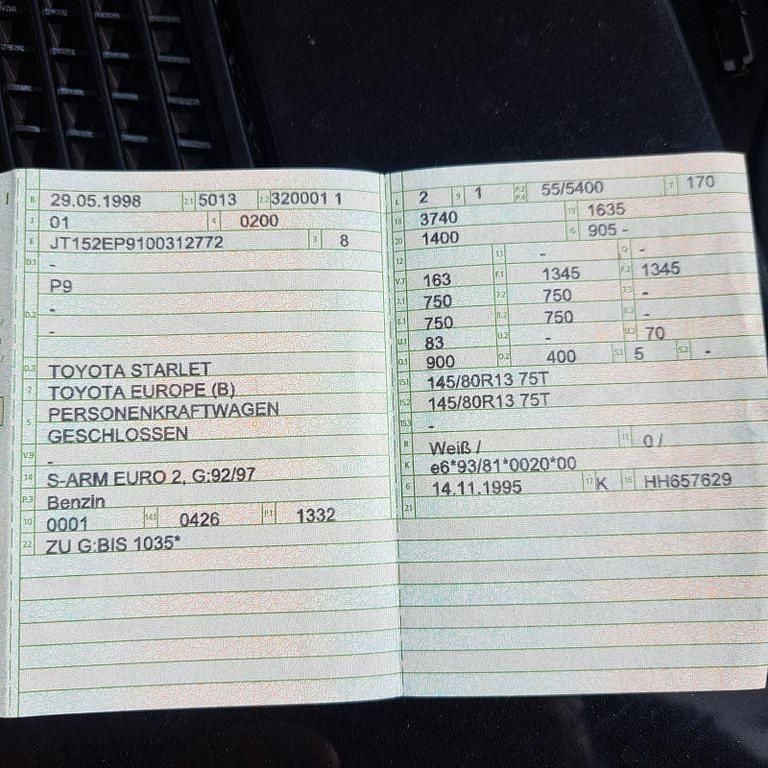 B 29.05.1998 2.1 5013 2.2 320001 1
J 01 4 0200
E JT152EP9100312772 3 8
D.1 -
P9
D.2 -
-
D.3 TOYOTA STARLET
2 TOYOTA EUROPE (B)
5 PERSONENKRAFTWAGEN
GESCHLOSSEN
V.9 -
14 S-ARM EURO 2, G:92/97
P.3 Benzin
10 0001 14.1 0426 P.1 1332
22 ZU G:BIS 1035*
L 2 9 1 P.2 P.4 55/5400 T 170
18 3740 19 1635
20 1400 G 905 -
12 13 - Q -
V.7 163 F.1 1345 F.2 1345
7.1 750 7.2 750 7.3 -
8.1 750 8.2 750 8.3 -
U.1 83 U.2 - U.3 70
O.1 900 O.2 400 S.1 5 S.2 -
15.1 145/80R13 75T
15.2 145/80R13 75T
15.3 -
R Weiß / 11 0 /
K e6*93/81*0020*00
6 14.11.1995 17 K 16 HH657629
21